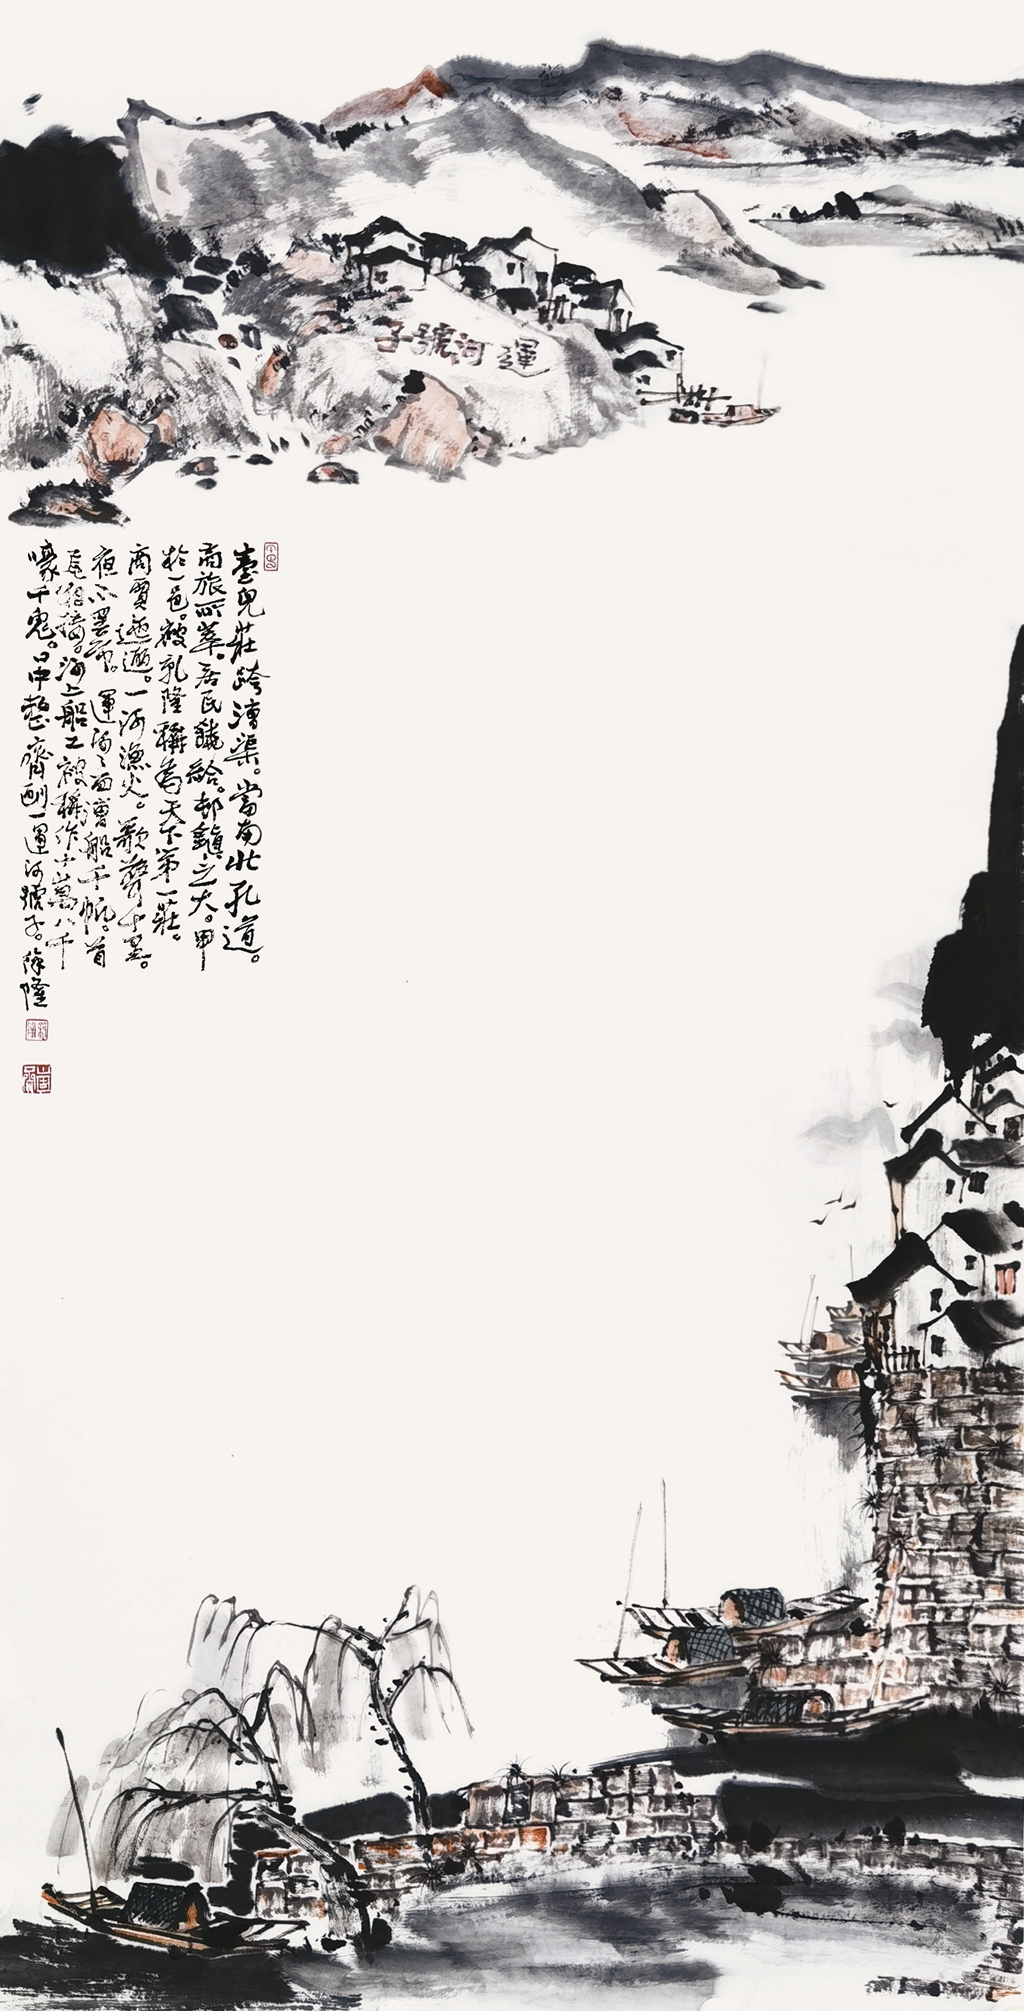 運河號子
臺兒莊跨漕渠。當南北孔道。
商旅所萃。居民饒給。村鎮之大。甲
於一邑。被乾隆稱為天下第一莊。
商賈迤邐。一河漁火。歌聲十里。
夜不罷市。運河々面漕船千帆。首
尾相接。河上船工被稱作十萬八千
嚎天鬼。口中整齊劃一運河號子。徐隆